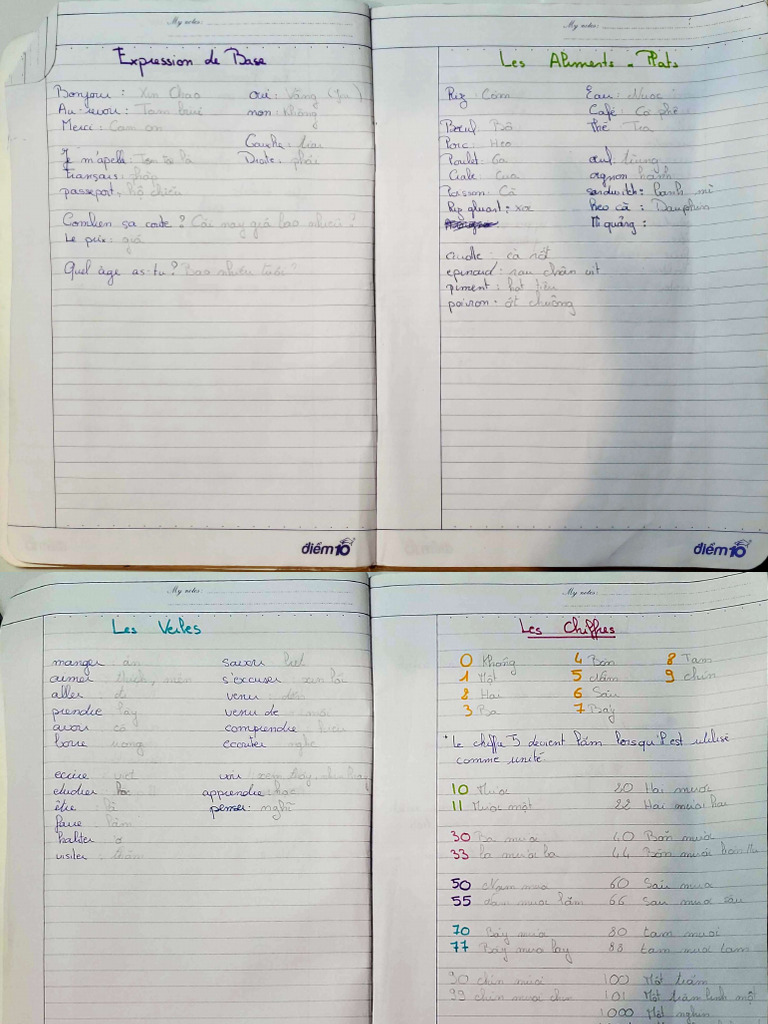 My notes:
Expression de Base
Bonjour : Xin Chao oui : Vâng
Au-revoir : Tam biet non : Không
Merci : Cam on
Gauche :
Je m'apelle : Droite : phải
Français : pháp
passeport : hộ chiếu
Combien sa coute ? Cái nay giá bao nhiêu ?
Le prix : giá
Quel âge as-tu ? Bao nhiêu tuổi ?
điểm10
My notes:
Les Aliments - Plats
Riz : Cơm Eau : Nước
Café : Cà phê
Bœuf : Bò Thé : Tra
Porc : Heo
Poulet : Ga œuf : trứng
Crabe : Cua oignon : hành
Poisson : Cá sandwitch : banh mi
Riz gluant : xoi heo cá : Dauphin
Mì quảng :
: cà rốt
epinard : rau chân vit
piment : hạt tiêu
poivron : ớt chuông
điểm10
My notes:
Les Verbes
manger : ăn savoir : biet
aimer : thich, s'excuser : xin lỗi
aller : đi venir : đến
prendre : lấy venir de : mới
avoir : có comprendre : hieu
boire : uong ecouter : nghe
ecrire : viet voir : xem thấy,
etudier : hoc apprendre : hoc
être : là penser : nghĩ
faire : làm
habiter : ở
visiter : thăm
My notes:
Les Chiffres
0 Không 4 Bón 8 Tam
1 Một 5 Năm 9 chin
8 Hai 6 Sáu
3 Ba 7 Bảy
* Le chiffre 5 devient lăm lorsqu'il est utilisé
comme unité.
10 Mười 20 Hai mươi
11 Mươi một 22 Hai mươi hai
30 Ba mươi 40 Bốn mươi
33 ba mươi ba 44 Bốn mươi bốn
50 Năm mươi 60 Sáu mươi
55 năm mươi lăm 66 Sáu mươi sáu
70 Bảy mươi 80 tam mươi
77 Bảy mươi bảy 88 tam mươi tam
90 chín mươi 100 Một trăm
99 chin mươi chin 101 Một trăm linh một
1000 Một nghìn